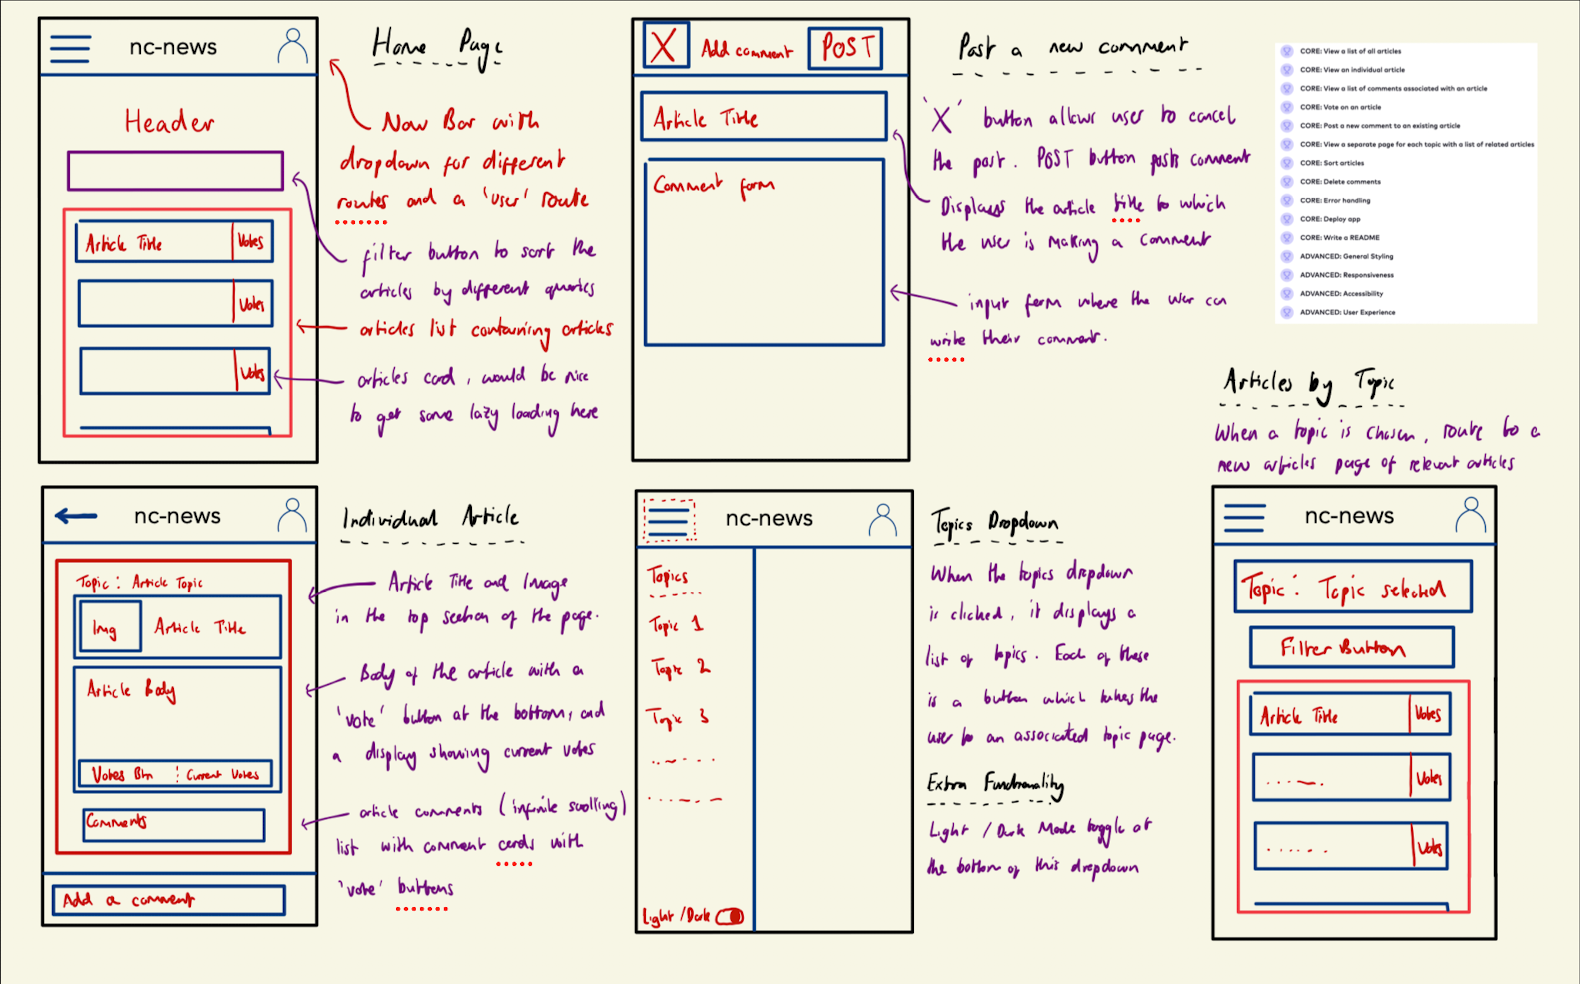 nc-news
Home Page
Header
Nav Bar with
dropdown for different
routes and a 'user' route
filter button to sort the
articles by different queries
articles list containing articles
articles card, would be nice
to get some lazy loading here
Article Title
Votes
Votes
Votes
X
Add comment
POST
Article Title
Comment form
Post a new comment
'X' button allows user to cancel
the post. POST button posts comment
Displays the article title to which
the user is making a comment
input form where the user can
write their comment.
CORE: View a list of all articles
CORE: View an individual article
CORE: View a list of comments associated with an article
CORE: Vote on an article
CORE: Post a new comment to an existing article
CORE: View a separate page for each topic with a list of related articles
CORE: Sort articles
CORE: Delete comments
CORE: Error handling
CORE: Deploy app
CORE: Write a README
ADVANCED: General Styling
ADVANCED: Responsiveness
ADVANCED: Accessibility
ADVANCED: User Experience
nc-news
Individual Article
Topic: Article Topic
Img
Article Title
Article Body
Votes Btn
Current Votes
Comments
Add a comment
Article Title and Image
in the top section of the page.
Body of the article with a
'vote' button at the bottom, and
a display showing current votes
article comments (infinite scrolling)
list with comment cards with
'vote' buttons
nc-news
Topics
Topic 1
Topic 2
Topic 3
Light/Dark
Topics Dropdown
When the topics dropdown
is clicked, it displays a
list of topics. Each of these
is a button which takes the
user to an associated topic page.
Extra Functionality
Light/Dark Mode toggle at
the bottom of this dropdown
Articles by Topic
When a topic is chosen, route to a
new articles page of relevant articles
nc-news
Topic: Topic selected
Filter Button
Article Title
Votes
Votes
Votes